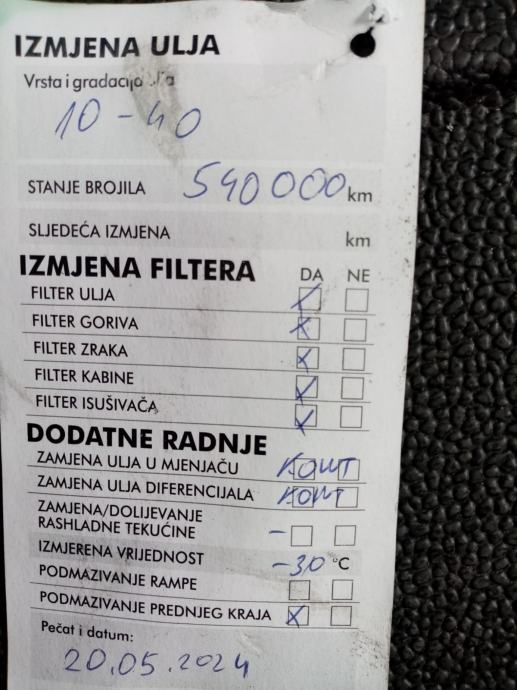 IZMJENA ULJA
Vrsta i gradacija
10-40
STANJE BROJILA 540000 km
SLJEDEĆA IZMJENA km
IZMJENA FILTERA DA NE
FILTER ULJA
FILTER GORIVA X
FILTER ZRAKA X
FILTER KABINE X
FILTER ISUŠIVAČA X
DODATNE RADNJE
ZAMJENA ULJA U MJENJAČU
ZAMJENA ULJA DIFERENCIJALA
ZAMJENA/DOLIJEVANJE
RASHLADNE TEKUĆINE -
IZMJERENA VRIJEDNOST -30 °C
PODMAZIVANJE RAMPE
PODMAZIVANJE PREDNJEG KRAJA X
Pečat i datum:
20.05.2024